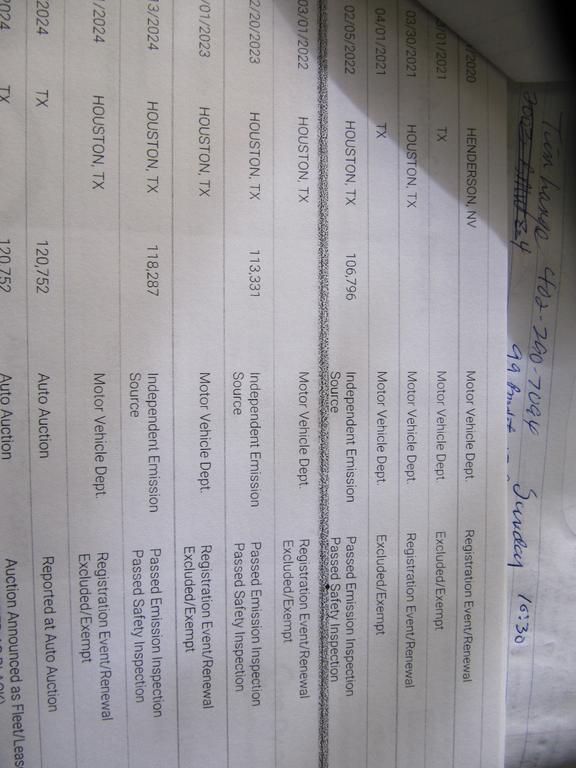 402-290-7094
Sunday 16:30
/2020 HENDERSON, NV Motor Vehicle Dept. Registration Event/Renewal
/01/2021 TX Motor Vehicle Dept. Excluded/Exempt
03/30/2021 HOUSTON, TX Motor Vehicle Dept. Registration Event/Renewal
04/01/2021 TX Motor Vehicle Dept. Excluded/Exempt
02/05/2022 HOUSTON, TX 106,796 Independent Emission Passed Emission Inspection
Source Passed Safety Inspection
03/01/2022 HOUSTON, TX Motor Vehicle Dept. Registration Event/Renewal
Excluded/Exempt
2/20/2023 HOUSTON, TX 113,331 Independent Emission Passed Emission Inspection
Source Passed Safety Inspection
/01/2023 HOUSTON, TX Motor Vehicle Dept. Registration Event/Renewal
Excluded/Exempt
3/2024 HOUSTON, TX 118,287 Independent Emission Passed Emission Inspection
Source Passed Safety Inspection
/2024 HOUSTON, TX Motor Vehicle Dept. Registration Event/Renewal
Excluded/Exempt
2024 TX 120,752 Auto Auction Reported at Auto Auction
2024 TX 120,752 Auto Auction Auction Announced as Fleet/Leas